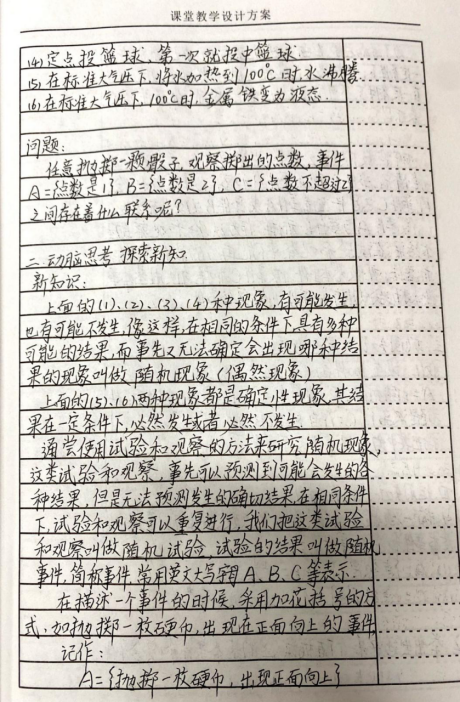 课堂教学设计方案
(4)定点投篮球,第一次就投中篮球.
(5)在标准大气压下,将水加热到100℃时,水沸腾.
(6)在标准大气压下,100℃时,金属铁变为液态.
问题:
任意抛掷一颗骰子,观察掷出的点数,事件
A={点数是1},B={点数是2},C={点数不超过2}
之间存在着什么联系呢?
二.动脑思考 探索新知.
新知识:
上面的(1)、(2)、(3)、(4)种现象,有可能发生,
也有可能不发生,像这样,在相同的条件下具有多种
可能的结果,而事先又无法确定会出现哪种结
果的现象叫做随机现象(偶然现象)
上面的(5)、(6)两种现象都是确定性现象,其结
果在一定条件下,必然发生或者必然不发生.
通常使用试验和观察的方法来研究随机现象,
这类试验和观察,事先可以预测到可能会发生的各
种结果,但是无法预测发生的确切结果在相同条件
下,试验和观察可以重复进行,我们把这类试验
和观察叫做随机试验.试验的结果叫做随机
事件,简称事件,常用英文大写字母A、B、C等表示.
在描述一个事件的时候,采用加花括号的方
式,如抛掷一枚硬币,出现在正面向上的事件
记作:
A={抛掷一枚硬币,出现正面向上}